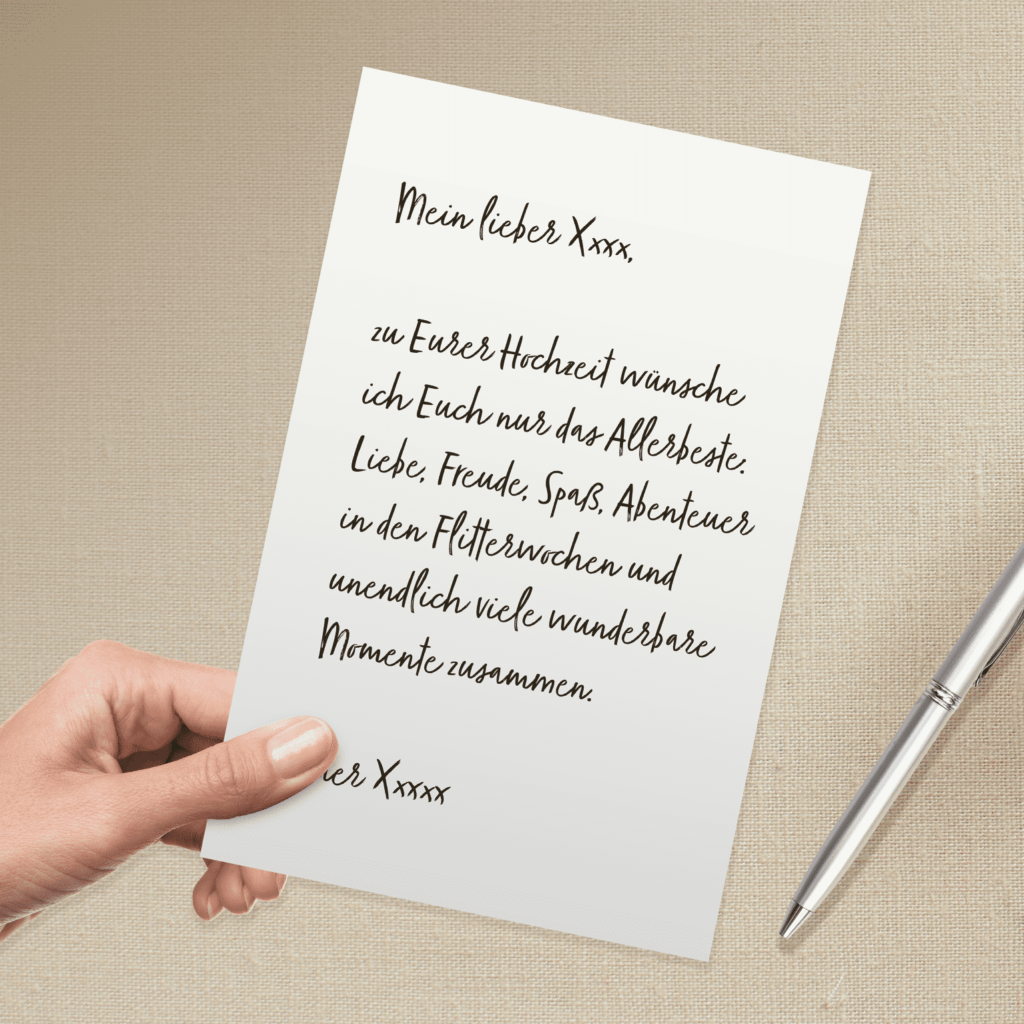 Mein lieber Xxxx,
zu Eurer Hochzeit wünsche
ich Euch nur das Allerbeste.
Liebe, Freude, Spaß, Abenteuer
in den Flitterwochen und
unendlich viele wunderbare
Momente zusammen.
Xxxxx